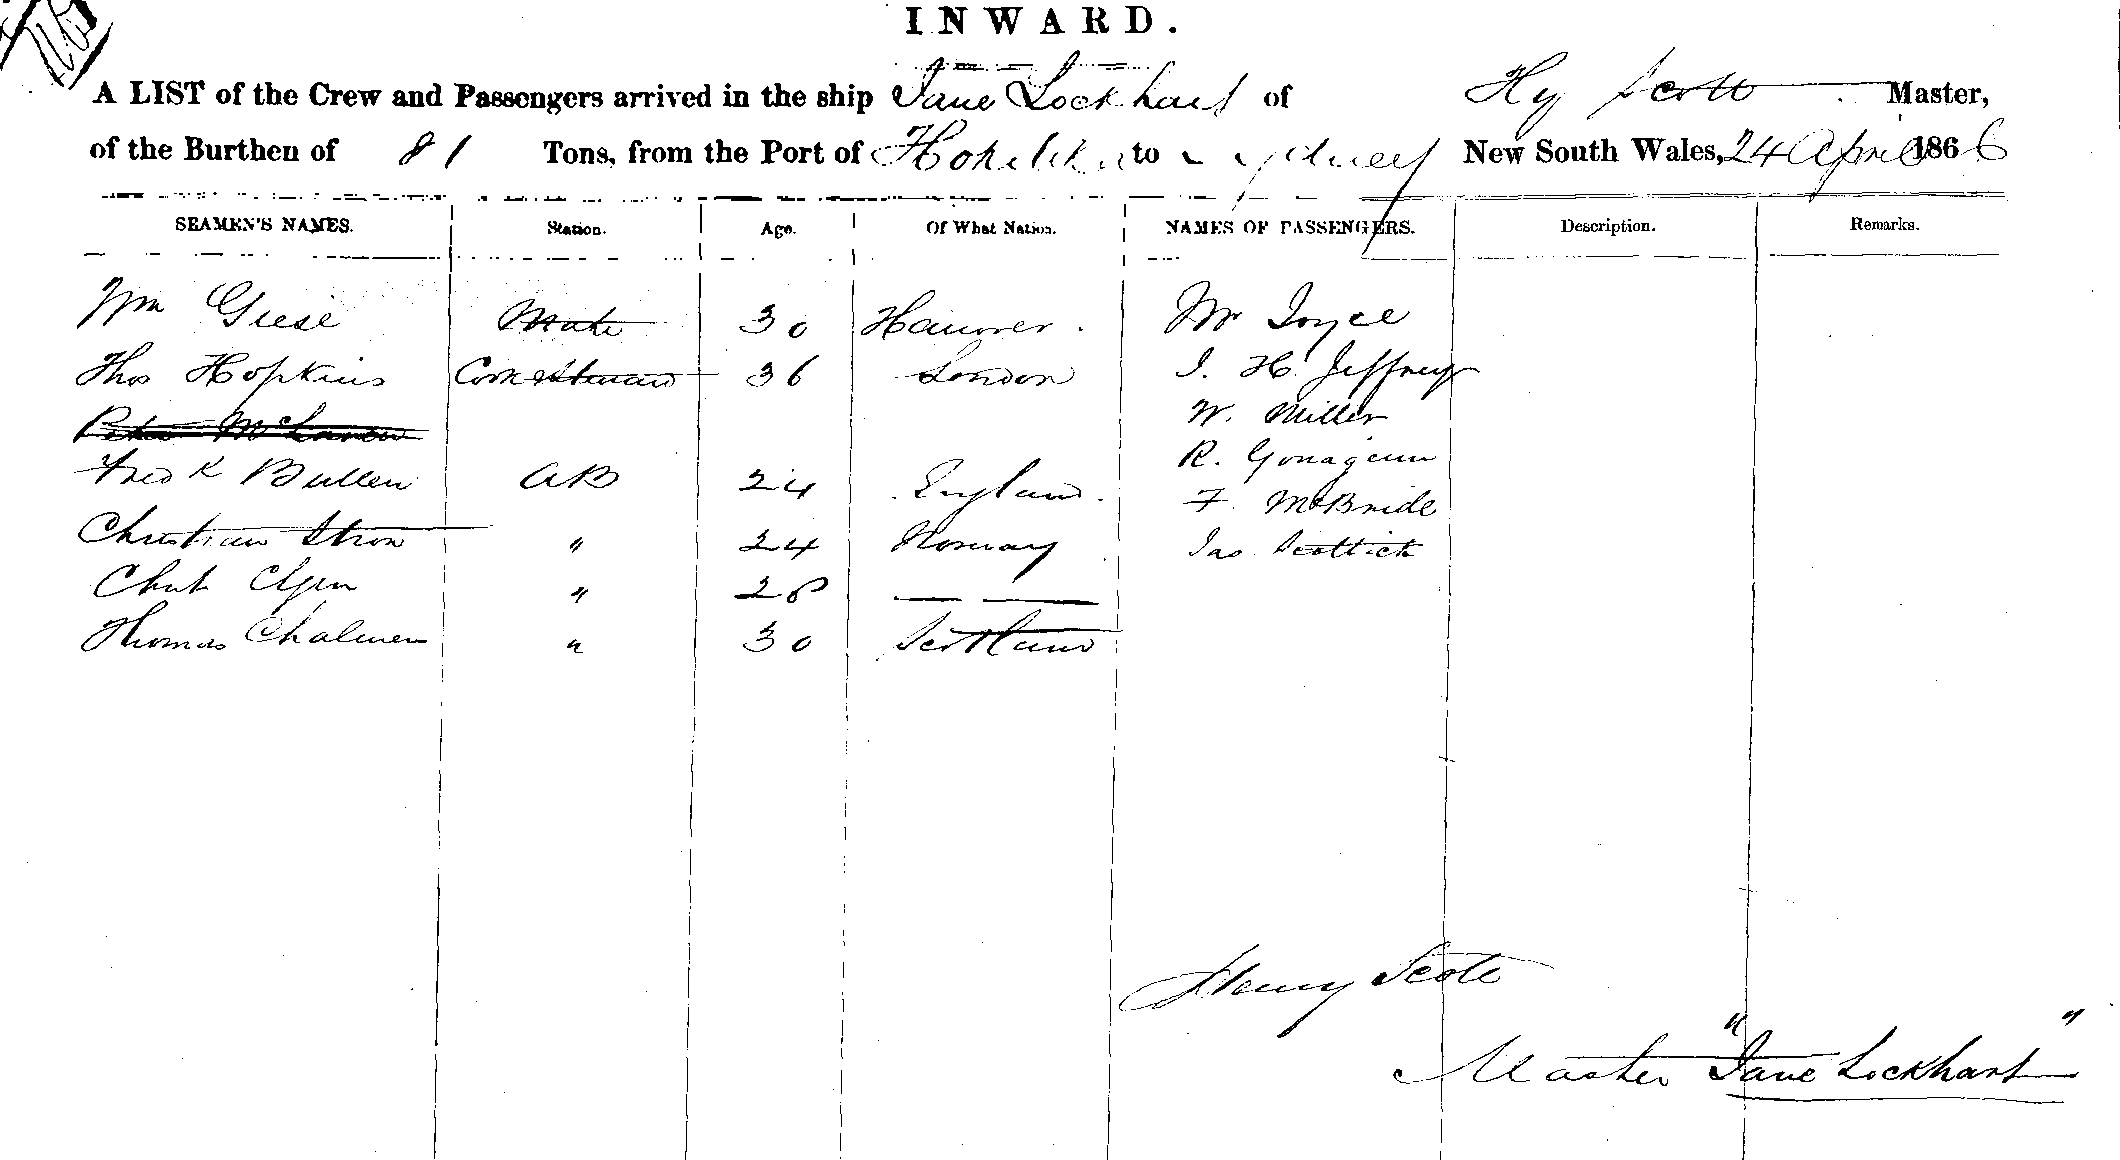 INWARD.
A LIST of the Crew and Passengers arrived in the ship Jane Lockhart of Hy Scott Master,
of the Burthen of 81 Tons, from the Port of Hokitika to Sydney New South Wales, 24 April 1866
SEAMEN'S NAMES. Station. Age. Of What Nation. NAMES OF PASSENGERS. Description. Remarks.
Wm Giese Mate 30 Hanover. Mr Joyce
Thos Hopkins Cook & Steward 36 London J. H. Jeffreys
Peter McLaren W. Miller
Fredk Bullen AB 24 England. R.
F. McBride
Christian Strom " 24 Norway Jas
" 28 — —
Thomas Chalmers " 30 Scotland
Henry Scott
Master "Jane Lockhart"